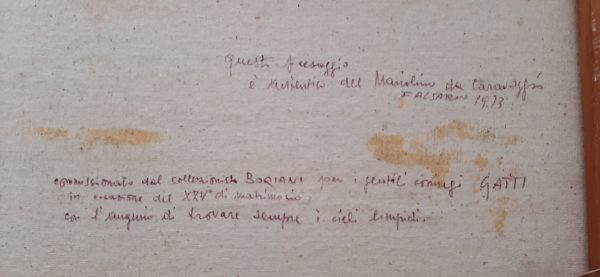 Questo paesaggio
è autentico del Mariolino da Caravaggio
FALSARIO 1973
commissionato dal collezionista BORIANI per i gentili coniugi GATTI
in occasione del XXV° di matrimonio,
con l'augurio di trovare sempre i cieli limpidi.